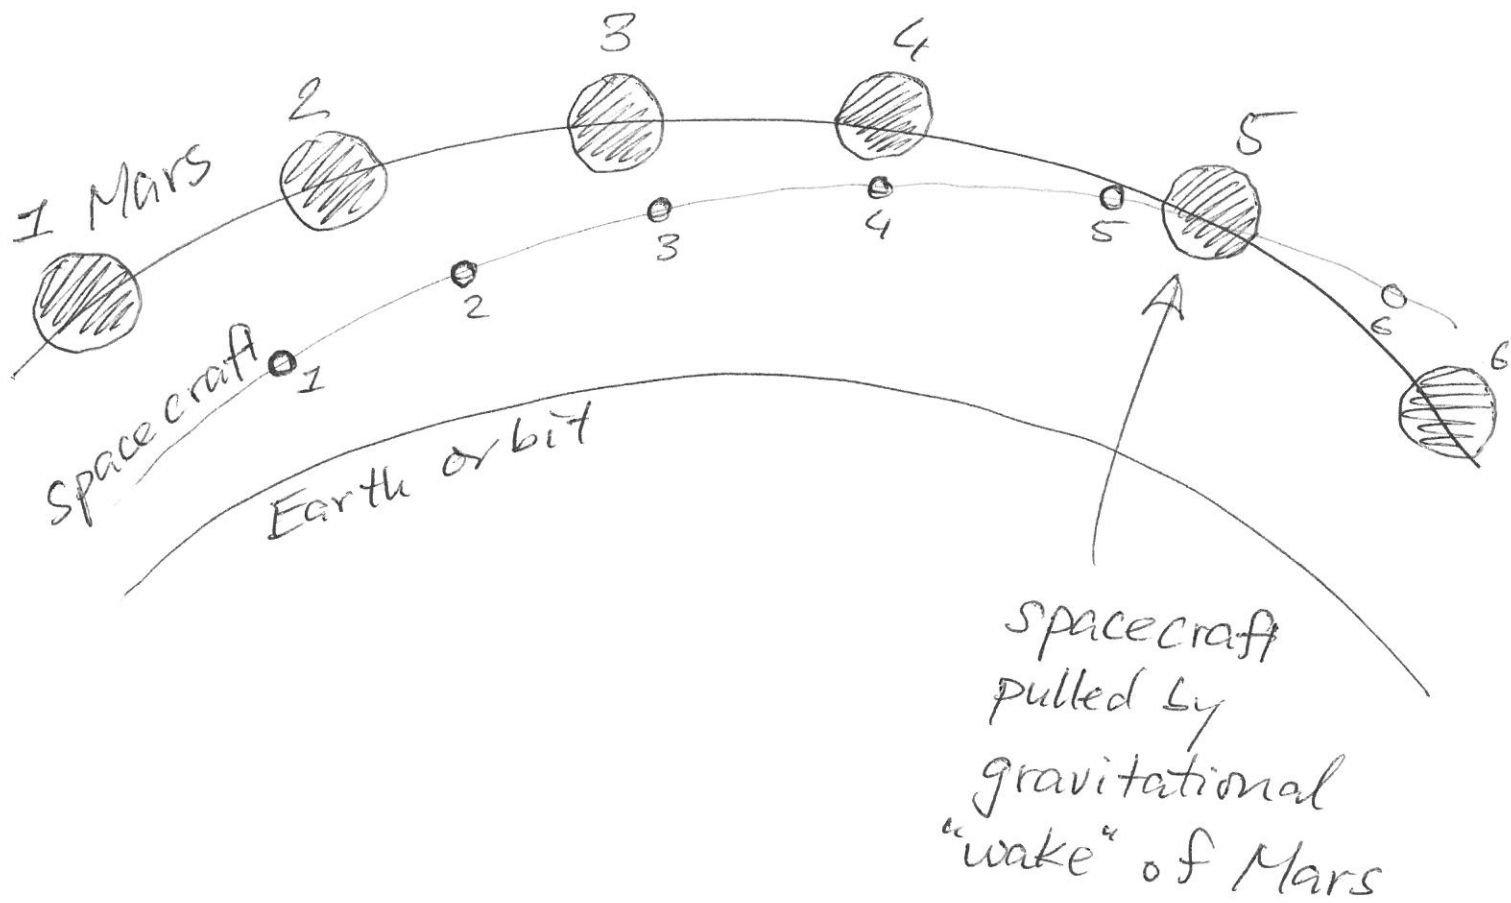 3
4
2
5
1 Mars
3
4
5
2
6
6
spacecraft
1
Earth orbit
spacecraft
pulled by
gravitational
"wake" of Mars